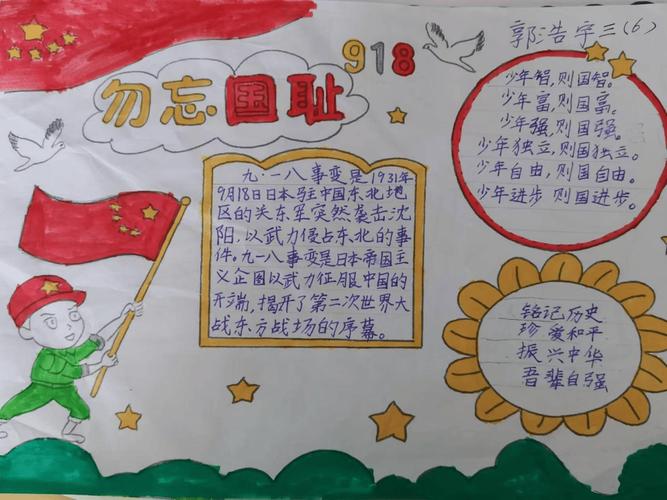 郭浩宇三(6)
918
勿忘国耻
少年智,则国智。
少年富,则国富,
少年强,则国强。
少年独立,则国独立。
少年自由,则国自由。
少年进步 则国进步。
九·一八事变是1931年
9月18日日本驻中国东北地
区的关东军突然袭击沈
阳,以武力侵占东北的事
件。九一八事变是日本帝国主
义企图以武力征服中国的
开端,揭开了第二次世界大
战东方战场的序幕。
铭记历史
珍爱和平
振兴中华
吾辈自强